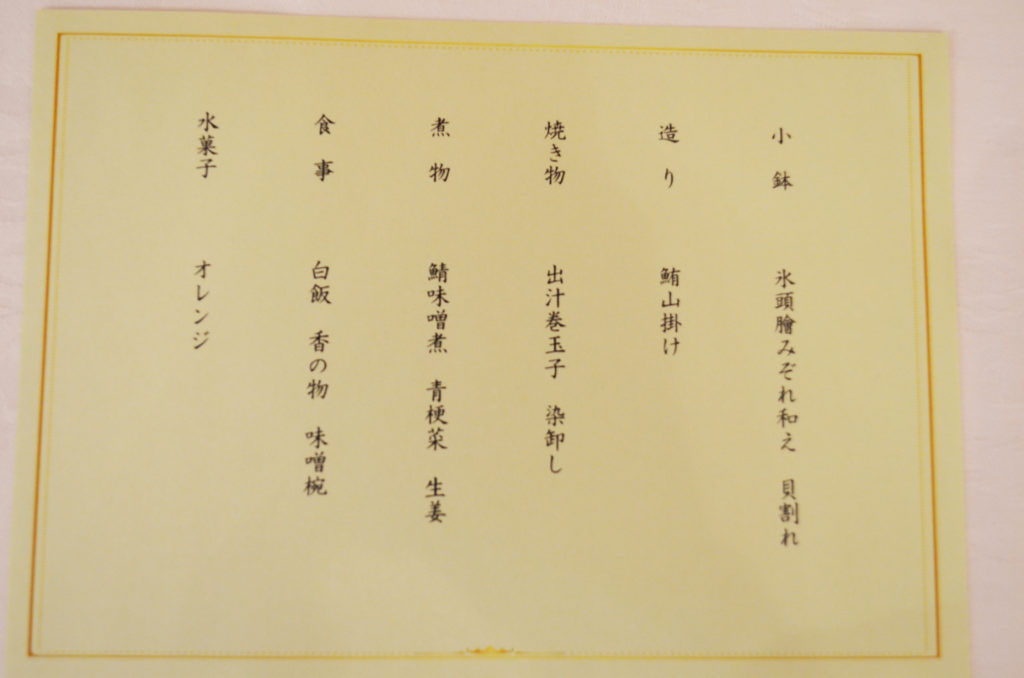 小鉢　氷頭膾みぞれ和え　貝割れ
造り　鮪山掛け
焼き物　出汁巻玉子　染卸し
煮物　鯖味噌煮　青梗菜　生姜
食事　白飯　香の物　味噌椀
水菓子　オレンジ